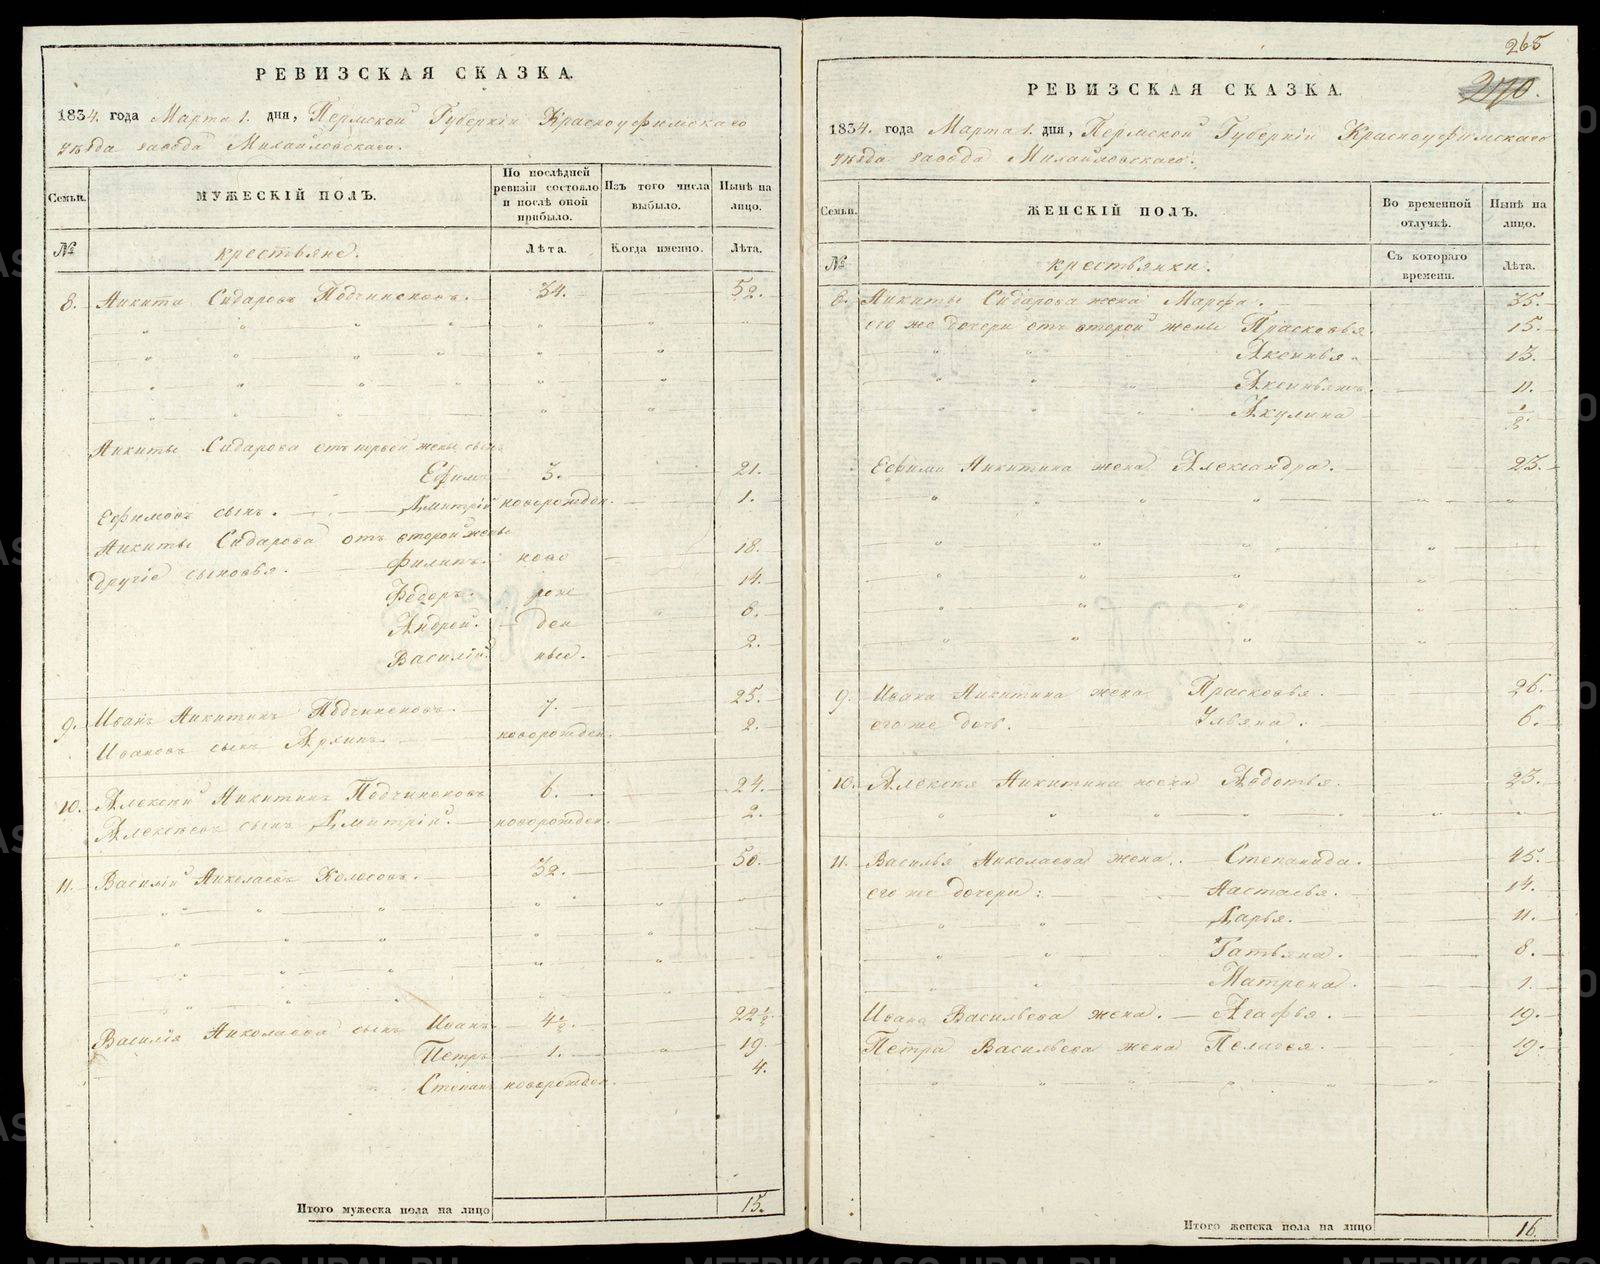 РЕВИЗСКАЯ СКАЗКА.
1834. года Марта 1. дня, Пермской Губерніи Красноуфимскаго
уѣзда завода Михайловскаго.
Семьи.
МУЖЕСКІЙ ПОЛЪ.
По послѣдней ревизіи состояло и послѣ оной прибыло.
Изъ того числа выбыло.
Нынѣ на лицо.
№
крестьяне.
Лѣта.
Когда именно.
Лѣта.
8. Никита Сидоровъ 34. 52.
Никиты Сидарова отъ первой жены сынъ
Ефимъ 3. 21.
Ефимовъ сынъ. Дмитрій новорожден. 1.
Никиты Сидарова отъ второй жены
другіе сыновья. Филипъ. ново 18.
Федоръ. рож 14.
Андрей. ден 6.
Василій ные. 2.
9. Иванъ Никитинъ 7. 25.
Ивановъ сынъ Архипъ новорожден. 2.
10. Алексѣй Никитинъ 6. 24.
Алексѣевъ сынъ Дмитрій. новорожден. 2.
11. Василій Николаевъ Колосовъ. 32. 50.
Василія Николаева сынъ Иванъ 4 1/2. 22 1/2.
Петръ 1. 19
Степанъ новорожден. 4.
Итого мужеска пола на лицо 15.
265
270.
РЕВИЗСКАЯ СКАЗКА.
1834. года Марта 1. дня, Пермской Губерніи Красноуфимскаго
уѣзда завода Михайловскаго.
Семьи.
ЖЕНСКІЙ ПОЛЪ.
Во временной отлучкѣ.
Нынѣ на лицо.
№
крестьянки.
Съ котораго времени.
Лѣта.
8. Никиты Сидарова жена Марфа. 35.
его же дочери отъ второй жены Прасковья. 15.
Аксинья. 13.
11.
Акулина 1/2.
Ефима Никитина жена Александра. 23.
9. Ивана Никитина жена Прасковья. 26.
его же дочь. Ульяна. 6.
10. Алексѣя Никитина жена Авдотья. 23.
11. Василья Николаева жена. Степанида. 45.
его же дочери: Настасья. 14.
Дарья. 11.
Татьяна. 8.
Матрена. 1.
Ивана Васильева жена. Агафья. 19.
Петра Васильева жена Пелагея. 19.
Итого женска пола на лицо 16.
METRIKI.GASO-URAL.RU